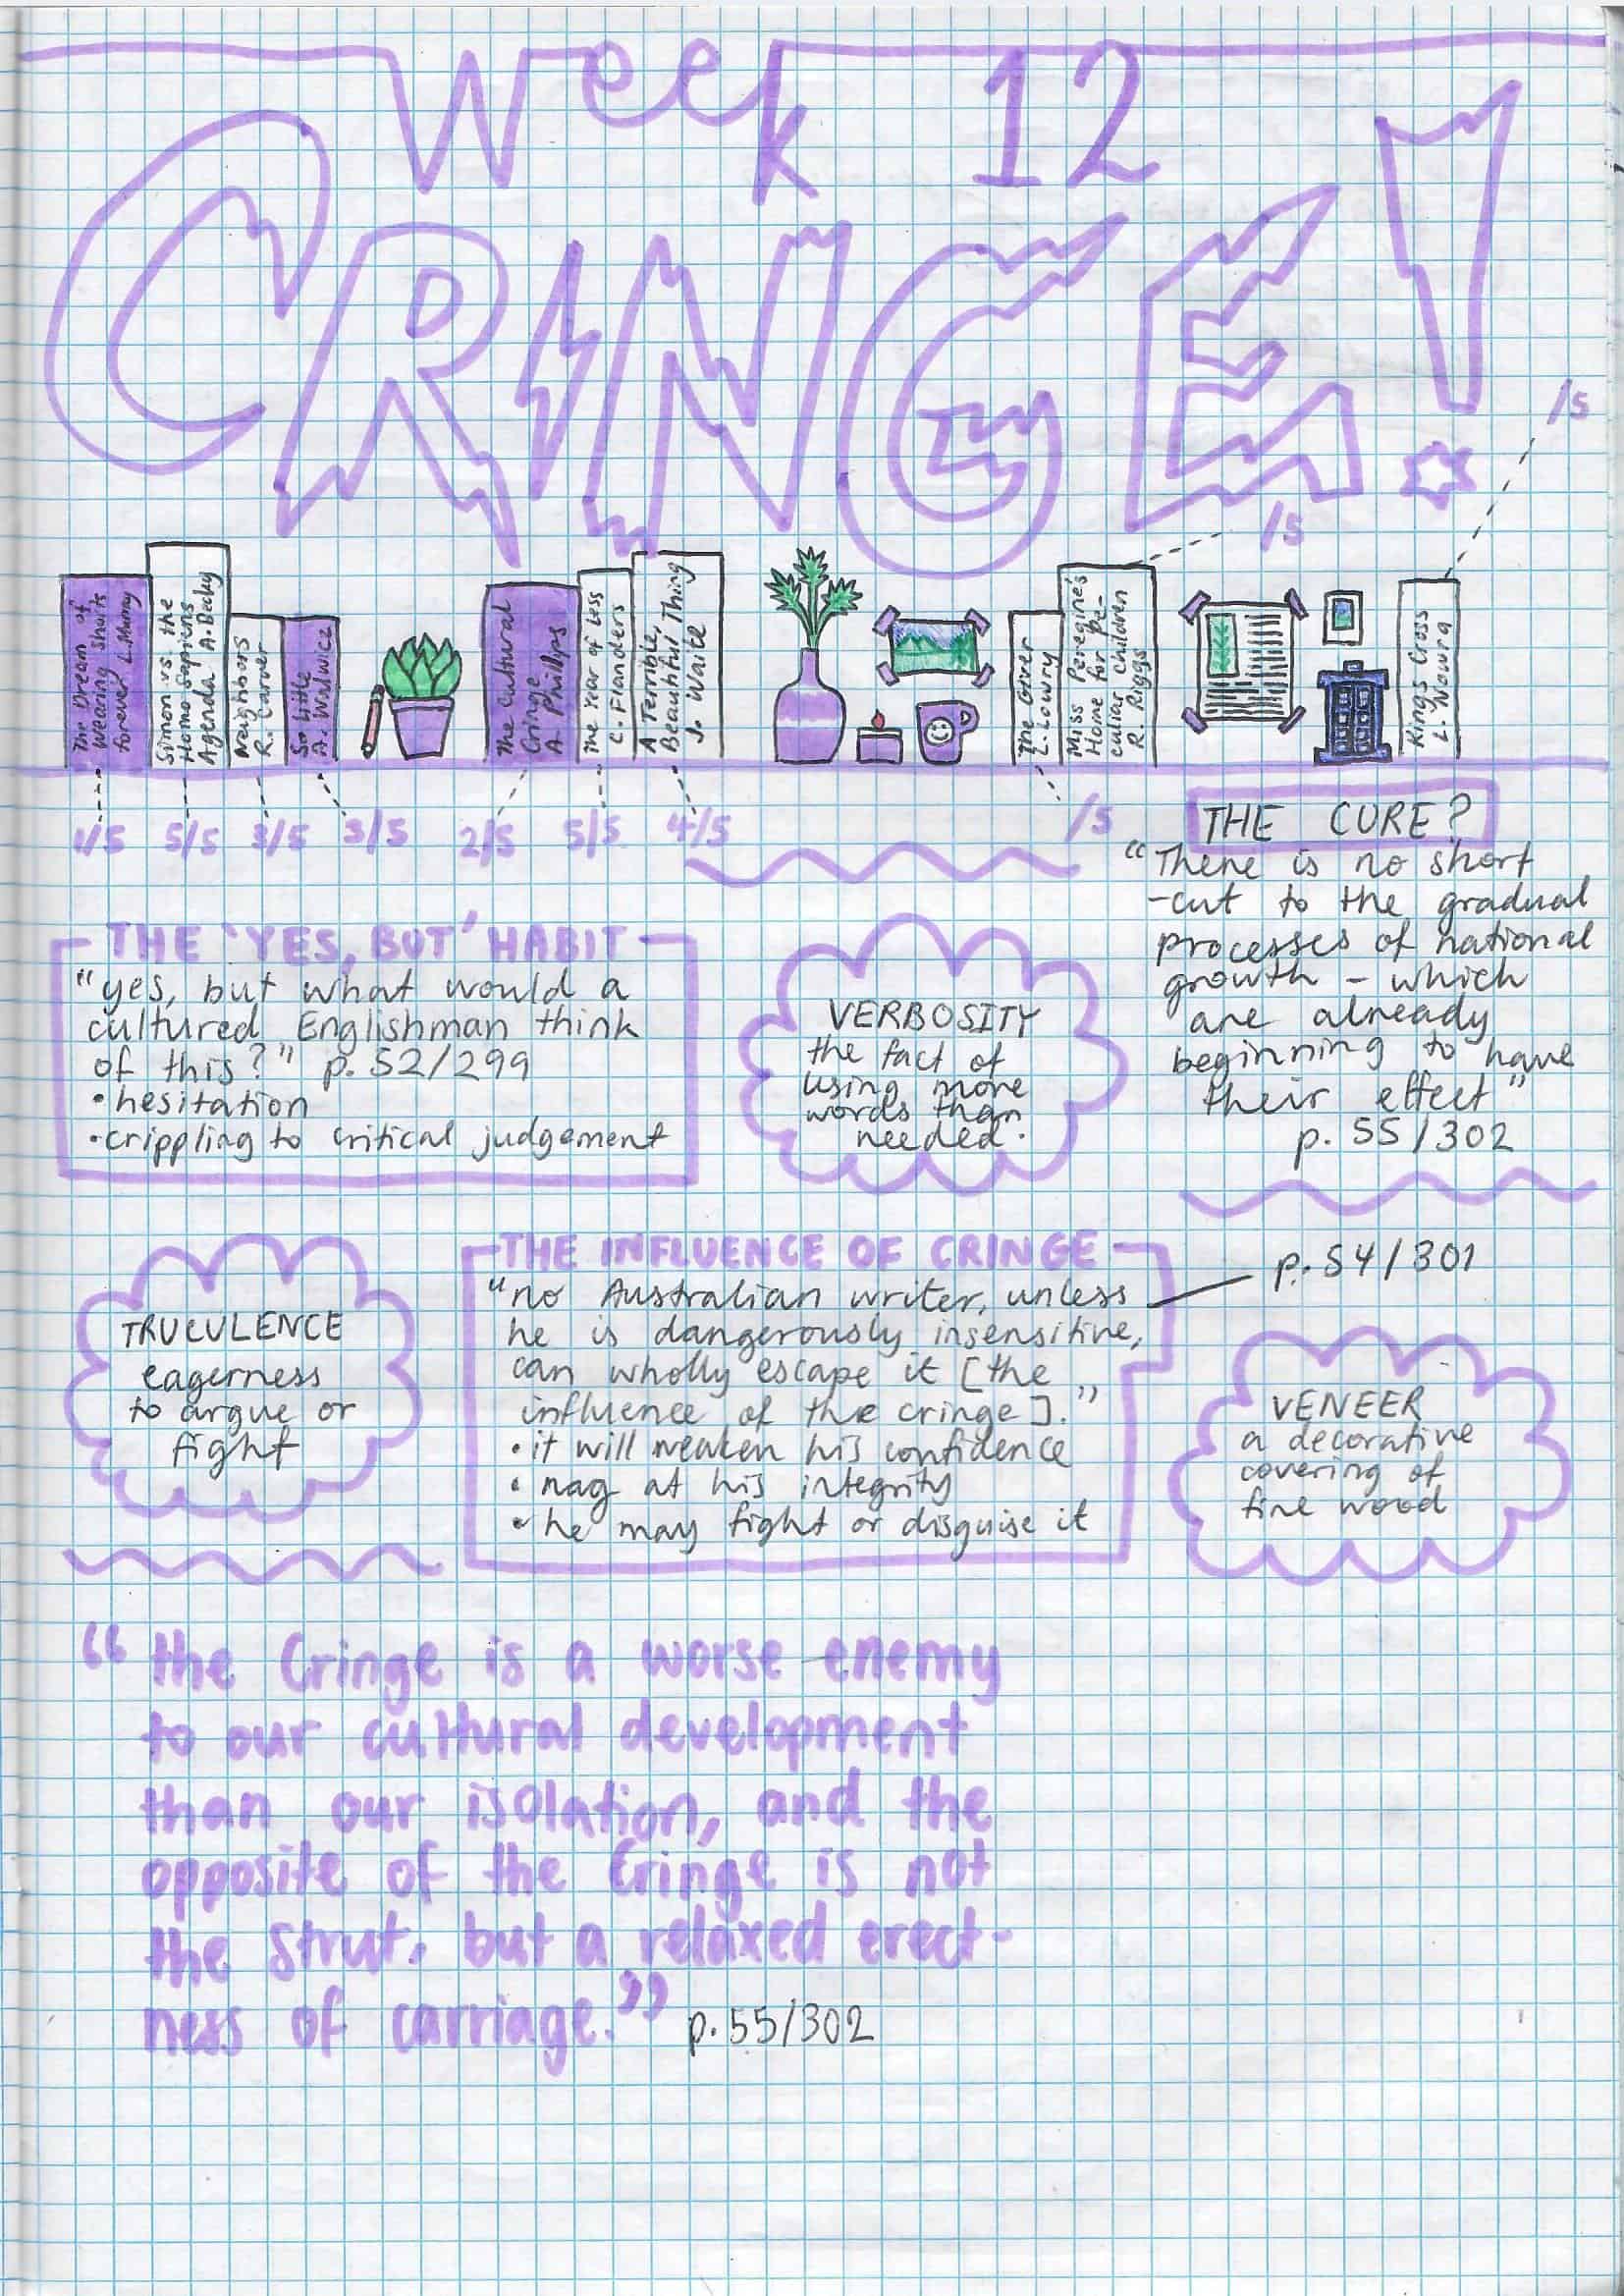 Week 12
CRINGE!
/5
/5
The Dream of
wearing shorts
forever L. Murray
Simon vs. the
Homo Sapiens
Agenda A. Becky
Neighbors
R. Carver
So Little
A. Walwicz
The Cultural
Cringe
A. Phillips
The Year of Less
C. Flanders
A Terrible,
Beautiful Thing
J. Waite
The Giver
L. Lowry
Miss Peregrine's
Home for Pe-
culiar Children
R. Riggs
Kings Cross
L. Nowra
5/5
3/5
3/5
2/5
5/5
4/5
/5
THE CURE?
"There is no short
-cut to the gradual
processes of national
growth - which
are already
beginning to have
their effect"
p. 55/302
THE 'YES, BUT' HABIT
"yes, but what would a
cultured Englishman think
of this?" p. 52/299
• hesitation
• crippling to critical judgement
VERBOSITY
the fact of
using more
words than
needed.
TRUCULENCE
eagerness
to argue or
fight
THE INFLUENCE OF CRINGE
"no Australian writer, unless
he is dangerously insensitive,
can wholly escape it [the
influence of the cringe]."
• it will weaken his confidence
• nag at his integrity
• he may fight or disguise it
p. 54/301
VENEER
a decorative
covering of
fine wood
"the Cringe is a worse enemy
to our cultural development
than our isolation, and the
opposite of the Cringe is not
the Strut, but a relaxed erect-
ness of carriage."
p. 55/302